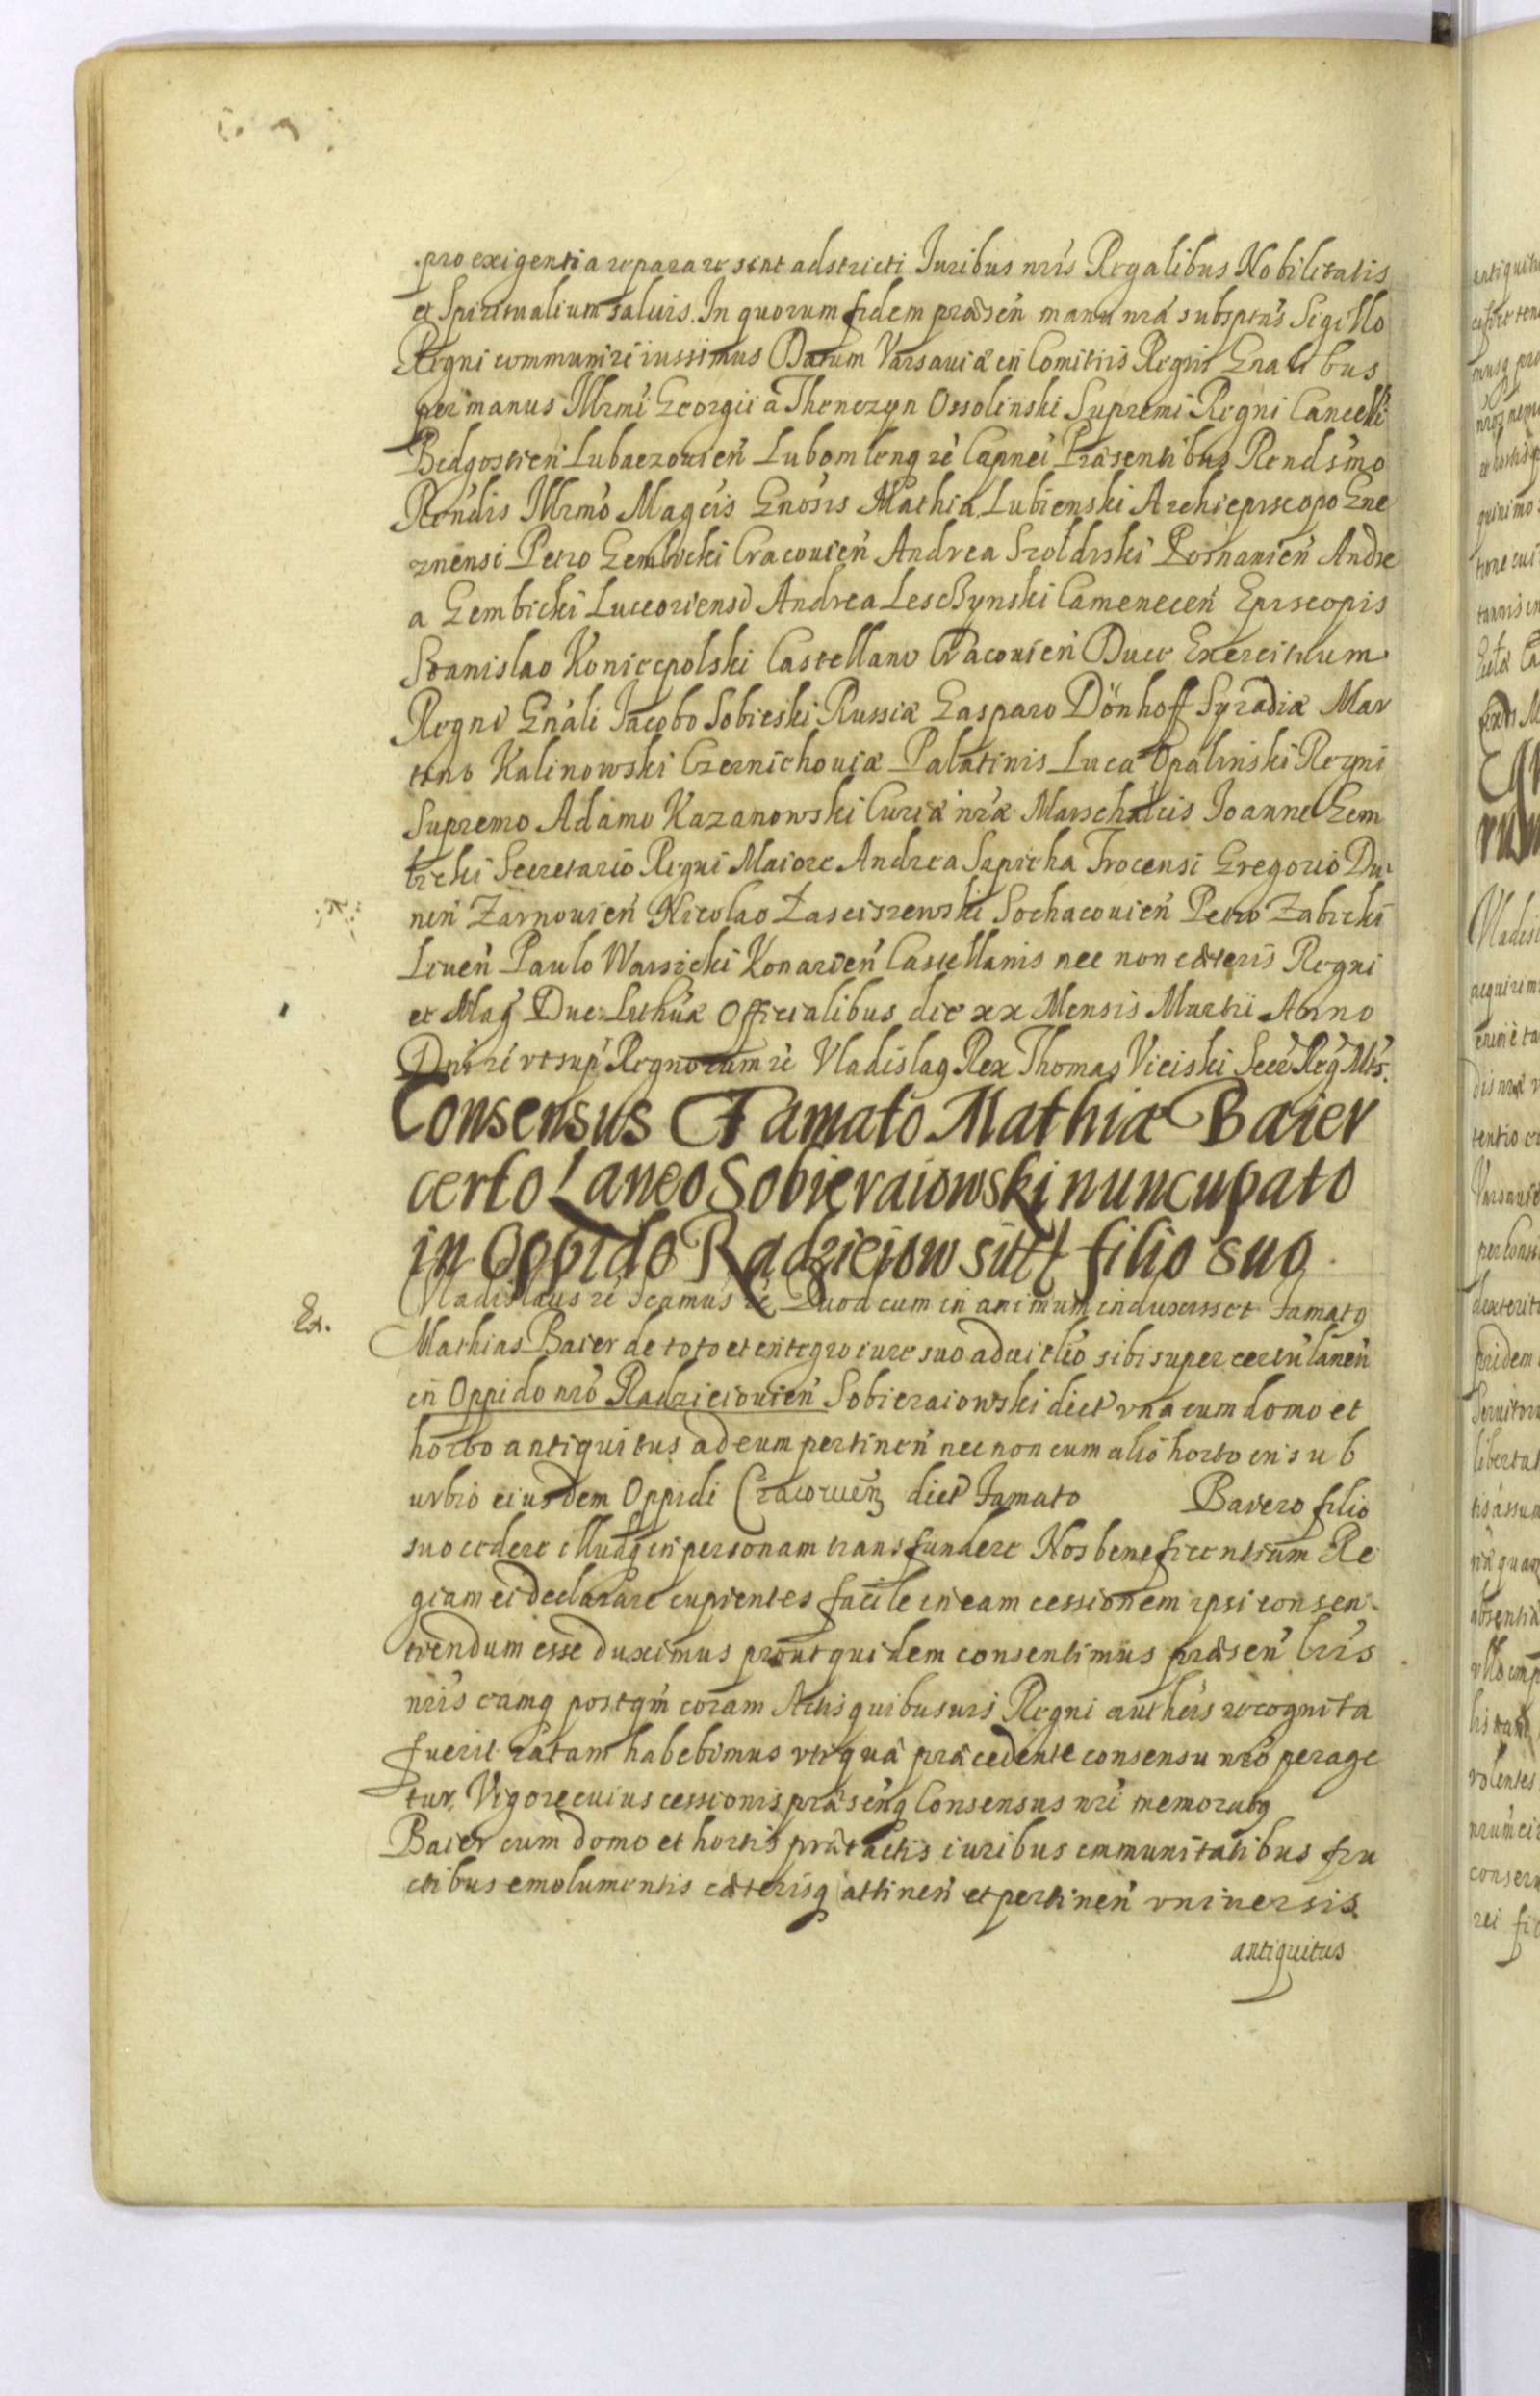 pro exigentia reparare sint adstricti Iuribus nr̃is Regalibus Nobilitatis
et Spiritualium saluis. In quorum fidem præsen̄ manu nr̃a subsptas̃ Sigillo
Regni communiri iussimus Datum Varsauiæ in Comitiis Regni Gnalibus
per manus Illrmi Georgii a Thenczyn Ossolinski Supremi Regni Cancelli
Bidgostien̄ Lubaczouien̄ Lubomlenq re Capnei Præsentibus Rendsmo
Rendis Illrmo Magcis Gnosis Mathia Lubienski Archiepiscopo Gne
znensi Petro Gembicki Cracouien̄ Andrea Szoldrski Posnanien̄ Andre
a Gembicki Luceoriensi Andrea Lesczynski Camenecen̄ Episcopis
Stanislao Koniecpolski Castellano Cracouien̄ Duce Exercituum
Regni Gnali Jacobo Sobieski Russiæ Gasparo Dönhoff Syradiæ Mar
tino Kalinowski Czernichouiæ Palatinis Luca Opalinski Regni
Supremo Adamo Kazanowski Curiæ nr̃æ Marschalcis Joanne Gem
bicki Secretario Regni Maiore Andrea Sapieha Trocensi Gregorio Du
nin Zarnouien̄ Nicolao Łasciszewski Sochacouien̄ Petro Zabicki
Liuen̄ Paulo Warsicki Konarien̄ Castellanis nec non cæteris Regni
et Mag Duc: Lithuæ Officialibus die xx Mensis Martii Anno
Dni re vt sup̃ Regnorum re Vladislaq Rex Thomas Vieiski Secr Reg Mtis.
Consensus Famato Mathiæ Baier
certo Laneo Sobieraiowski nuncupato
in Oppido Radzieiow sitt filio suo
Vladislaus re Scamus re Quod cum in animum induxisset Famatq
Ex.
Mathias Baier de toto et integro iure suo aduitlio sibi super certu lanen̄
in Oppido nr̃o Radzieiouien̄ Sobieraiowski dict vna cum domo et
horto antiquitus ad eum pertinen̄ nec non cum alio horto in sub
urbio eiusdem Oppidi Cracouien̄ dict Famato Baiero filio
suo cedere illudq in personam transfundere Nos beneficentiam Re
giam ei declarare cupientes facile in eam cessionem ipsi consen
tiendum esse duximus prout quidem consentimus præsen̄ lr̃is
nr̃is eamq postqm̃ coram Actis quibusuis Regni authcis recognita
fuerit ratam habebimus vtiqua præcedente consensu nr̃o perage
tur. Vigore cuius cessionis præsenq Consensus nr̃i memoratq
Baier cum domo et hortis prætactis iuribus immunitatibus fru
ctibus emolumentis cæterisq attinen̄ et pertinen̄ vniuersis
antiquitus